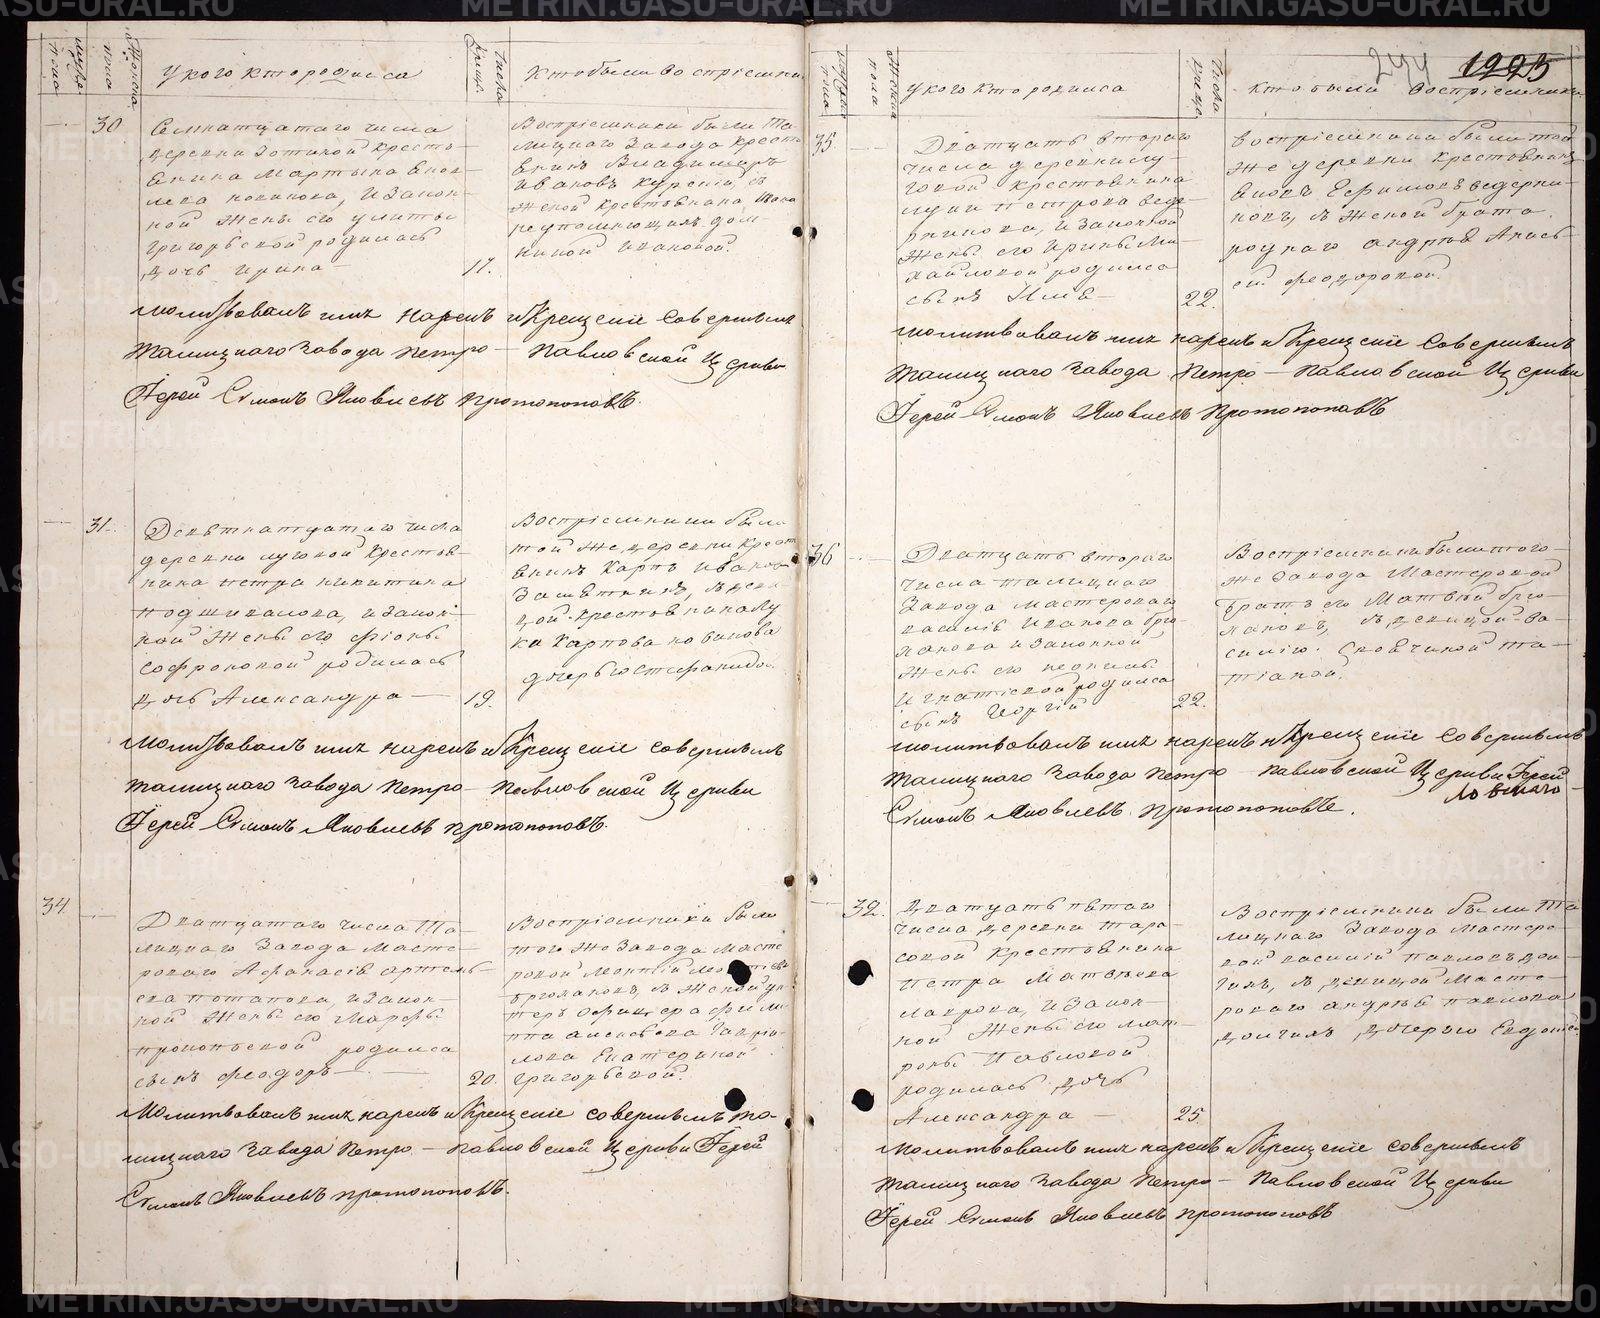 Мужска пола
Женска пола
У кого кто родился
Числа Крещ.
Кто были воспріемники
30
Семнатцатаго числа
деревни Зотиной Кресть-
янина Мартына Яков-
лева новикова, и Закон-
ной Жены его улиты
Григорьевой родилась
дочь ирина 17.
Воспріемники были Та-
лицкаго Завода Крест
янинъ Владимиръ
Ивановъ Куреній, съ
Женой Крестьянина
киной Ивановой.
Молитвовалъ имя нарекъ и Крещеніе Совершилъ
Талицкаго Завода Петро-Павловской Церкви
Іерей Симонъ Яковлевъ Протопоповъ.
31.
Девятнатцатаго числа
деревни луговой Крестья-
нина петра никитина
подшивалова, и Закон-
ной Жены его Фіоны
Софроновой родилась
дочь Александра 19.
Воспріемники были
той Же деревни Крест
янинъ Карпъ Иванов
Замятнинъ, съ деви-
цой Крестьянина Лу
ки Карпова новикова
дочерью Стефанидо.
Молитвовалъ имя нарекъ и Крещеніе совершилъ
Талицкаго Завода Петро-Павловской Церкви
Іерей Симонъ Яковлевъ Протопоповъ.
34
Дватцатаго числа Та-
лицкаго Завода Масте-
роваго Афанасія артемь-
ева потапова, и Закон-
ной Жены его Марфы
прокопьевой родился
сынъ феодоръ 20.
Воспріемники были
того Же Завода Масте
ровой
брюхановъ, съ Женой ун-
теръ Офицера фили-
ппа алексеева Гаврі-
лова Екатериной
Григорьевой.
Молитвовалъ имя нарекъ и Крещеніе совершилъ та-
лицкаго Завода Петро-Павловской Церкви Іерей
Симонъ Яковлевъ протопоповъ.
244 1995
Мужска пола
Женска пола
У кого кто родился
Числа Креще.
Кто были воспріемники
35
Дватцать втораго
числа деревни лу-
говой Крестьянина
луки петрова веде-
рникова, и Законной
Жены его Ирины Ми-
хайловой родился
сынъ Илія 22.
Воспріемники были той
Же деревни Крестьянинъ
Яковъ Ефимовъ ведерни-
ковъ, съ Женой брата
роднаго андрея Анись-
ей феодоровой.
Молитвовалъ имя нарекъ и Крещеніе Совершилъ
Талицкаго Завода Петро-Павловской Церкви
Іерей Симонъ Яковлевъ Протопоповъ
36
Дватцать втораго
числа талицкаго
Завода Мастероваго
василія Иванова брю-
ханова и Законной
Жены его неонилы
Игнатьевой родился
сынъ Георгій 22.
Воспріемники были того-
же Завода Мастеровой
братъ его Матвѣй брю-
хановъ, съ девицой ва-
тіаной.
Молитвовалъ имя нарекъ и Крещеніе Совершилъ
Талицкаго Завода Петро-Павловской Церкви Іерей
Симонъ Яковлевъ Протопоповъ.
32.
Дватцать пятаго
числа деревни Тара-
совой Крестьянина
петра Матвѣева
лаврова, и Закон-
ной Жены его мат-
роны Павловой
родилась дочь
Александра 25
Воспріемники были Та
лицкаго Завода Мастеро-
вой василій павловъ дол-
гихъ, съ девицой Масте-
роваго андрѣя павлова
долгихъ дочерью Евдокіей.
Молитвовалъ имя нарекъ и Крещеніе совершилъ
Талицкаго Завода Петро-Павловской Церкви
Іерей Симонъ Яковлевъ Протопоповъ
METRIKI.GASO-URAL.RU